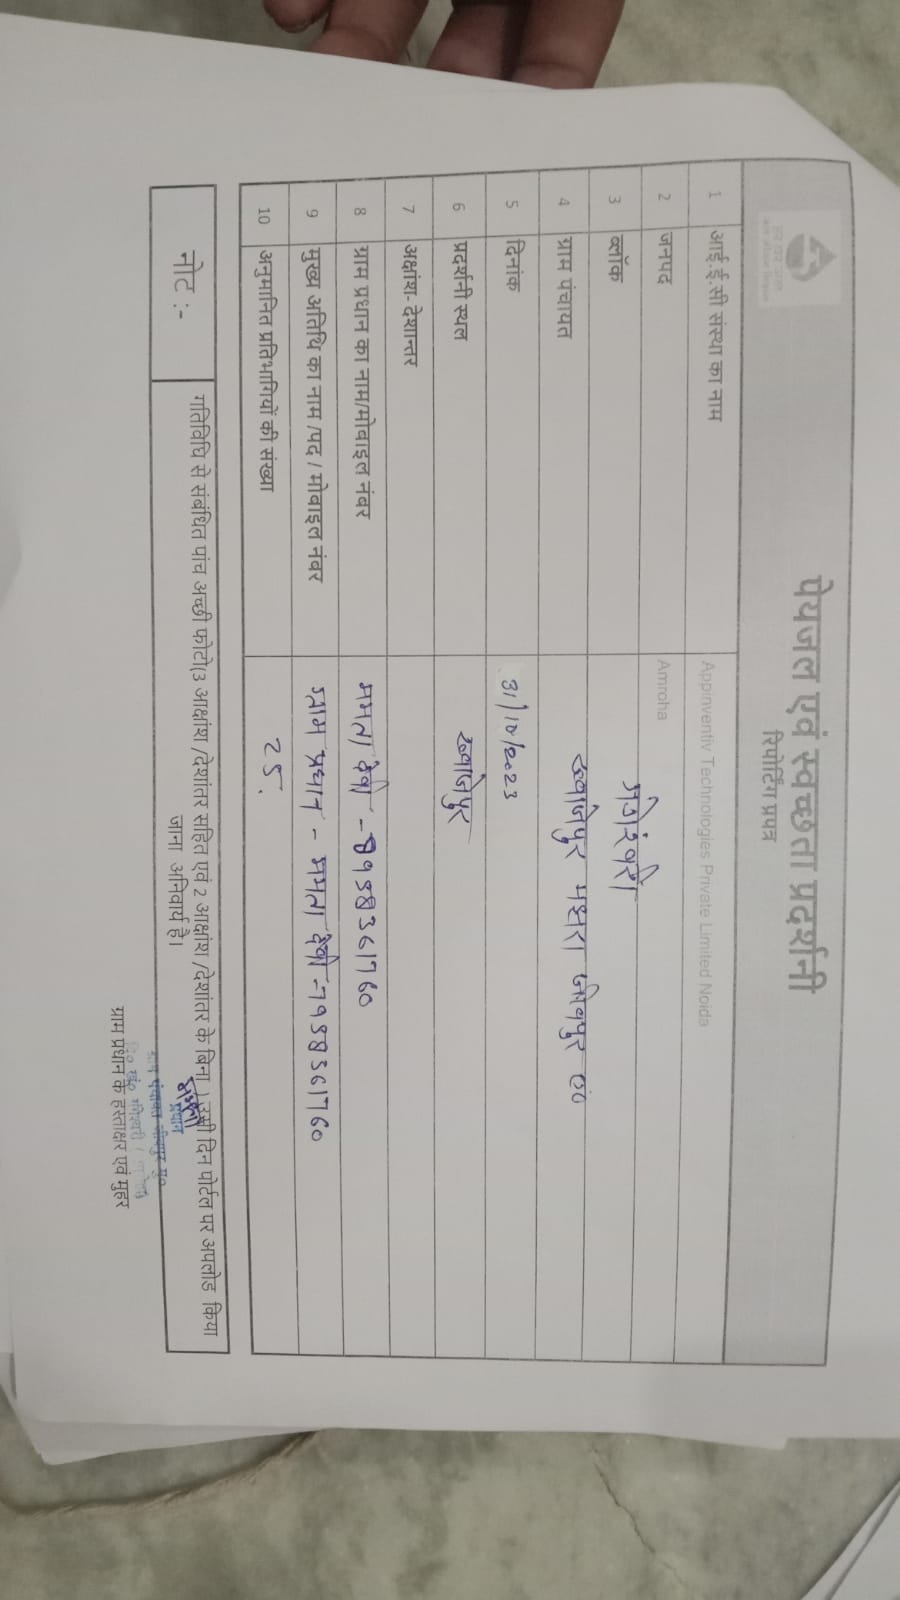 पेयजल एवं स्वच्छता प्रदर्शनी
रिपोर्टिंग प्रपत्र
1 आई.ई.सी संस्था का नाम Appinventiv Technologies Private Limited Noida
2 जनपद Amroha
3 ब्लॉक गंगेश्वरी
4 ग्राम पंचायत ख्वाजपुर
5 दिनांक 31/10/2023
6 प्रदर्शनी स्थल ख्वाजपुर
7 अक्षांश- देशान्तर
8 ग्राम प्रधान का नाम/मोबाइल नंबर ममता देवी -
9 मुख्य अतिथि का नाम /पद / मोबाइल नंबर ग्राम प्रधान - ममता देवी -
10 अनुमानित प्रतिभागियों की संख्या 25.
नोट :- गतिविधि से संबंधित पांच अच्छी फोटो(3 आक्षांश /देशांतर सहित एवं 2 आक्षांश /देशांतर के बिना ) उसी दिन पोर्टल पर अपलोड किया
जाना अनिवार्य है।
ममता
प्रधान
ग्राम प्रधान के हस्ताक्षर एवं मुहर